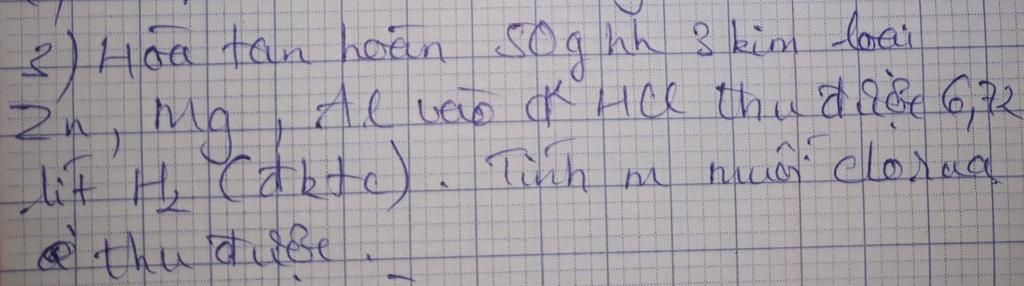 3) Hòa tan hoàn 50g hh 3 kim loại
Zn, Mg, Al vào HCl thu được 6,72
lít H₂ (đktc). Tính m muối clorua
thu được.